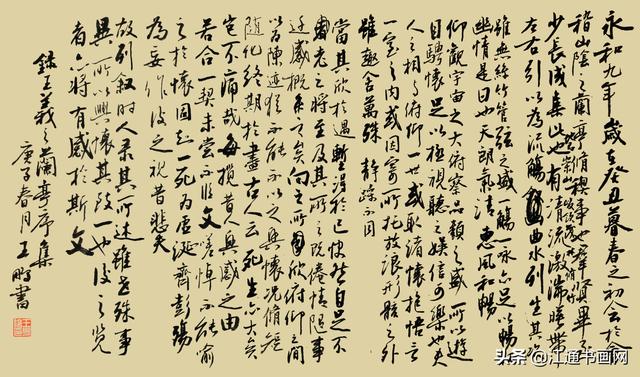 永和九年歲在癸丑暮春之初會於會
稽山陰之蘭亭脩禊事也羣賢畢至
少長咸集此地有清流激湍暎帶
崇山峻領茂林脩竹
左右引以為流觴曲水列坐其次
雖無絲竹管弦之盛一觴一詠亦足以暢
幽情是日也天朗氣清惠風和暢
仰觀宇宙之大俯察品類之盛所以遊
目騁懷足以極視聽之娛信可樂也夫
人之相與俯仰一世或取諸懷抱悟言
一室之內或因寄所託放浪形骸之外
雖趣舍萬殊靜躁不同
當其欣於所遇暫得於己快然自足不
老之將至及其所之既倦情隨事
遷感慨係之矣向之所欣俯仰之間
以為陳迹猶不能不以之興懷況脩短
隨化終期於盡古人云死生亦大矣
豈不痛哉每攬昔人興感之由
若合一契未嘗不臨文嗟悼不能喻
之於懷固知一死生為虛誕齊彭殤
為妄作後之視昔悲夫
故列敘時人录其所述雖世殊事
異所以興懷其致一也後之覽
者亦將有感於斯文
錄王羲之蘭亭序集
庚子春月王鵬書
头条@江通书画网